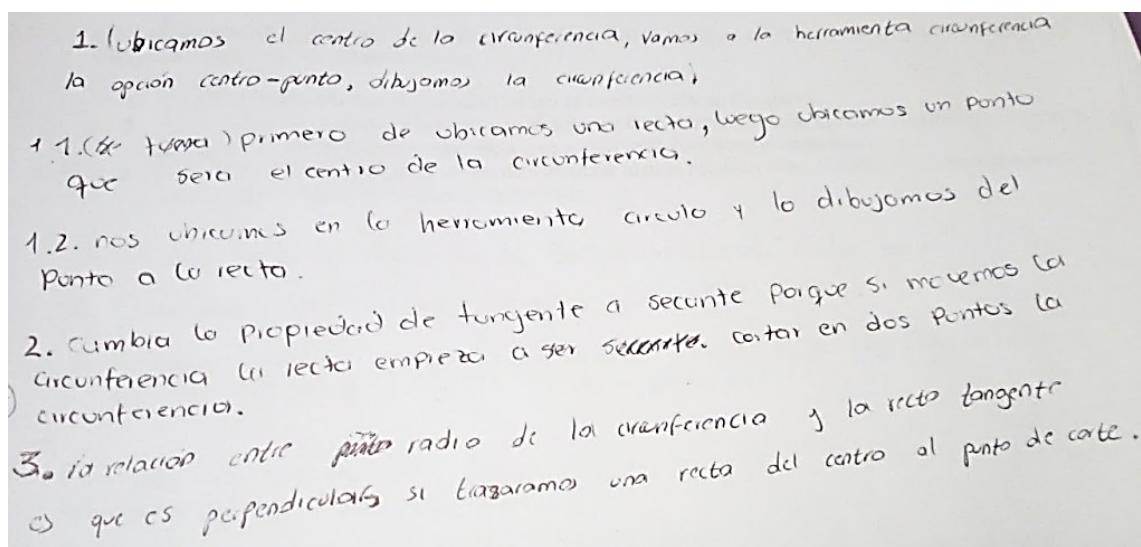 1. Ubicamos el centro de la circunferencia, vamos a la herramienta circunferencia
la opción centro-punto, dibujamos la circunferencia,
1.1. ( ) primero de ubicamos una recta, luego ubicamos un punto
que sera el centro de la circunferencia.
1.2. nos ubicamos en la herramienta circulo y lo dibujamos del
Punto a la recta.
2. cambia la propiedad de tangente a secante porque si movemos la
circunferencia la recta empieza a ser cortar en dos puntos la
circunferencia.
3. la relación entre radio de la circunferencia y la recta tangente
es que es perpendicular si trazaramos una recta del centro al punto de corte.